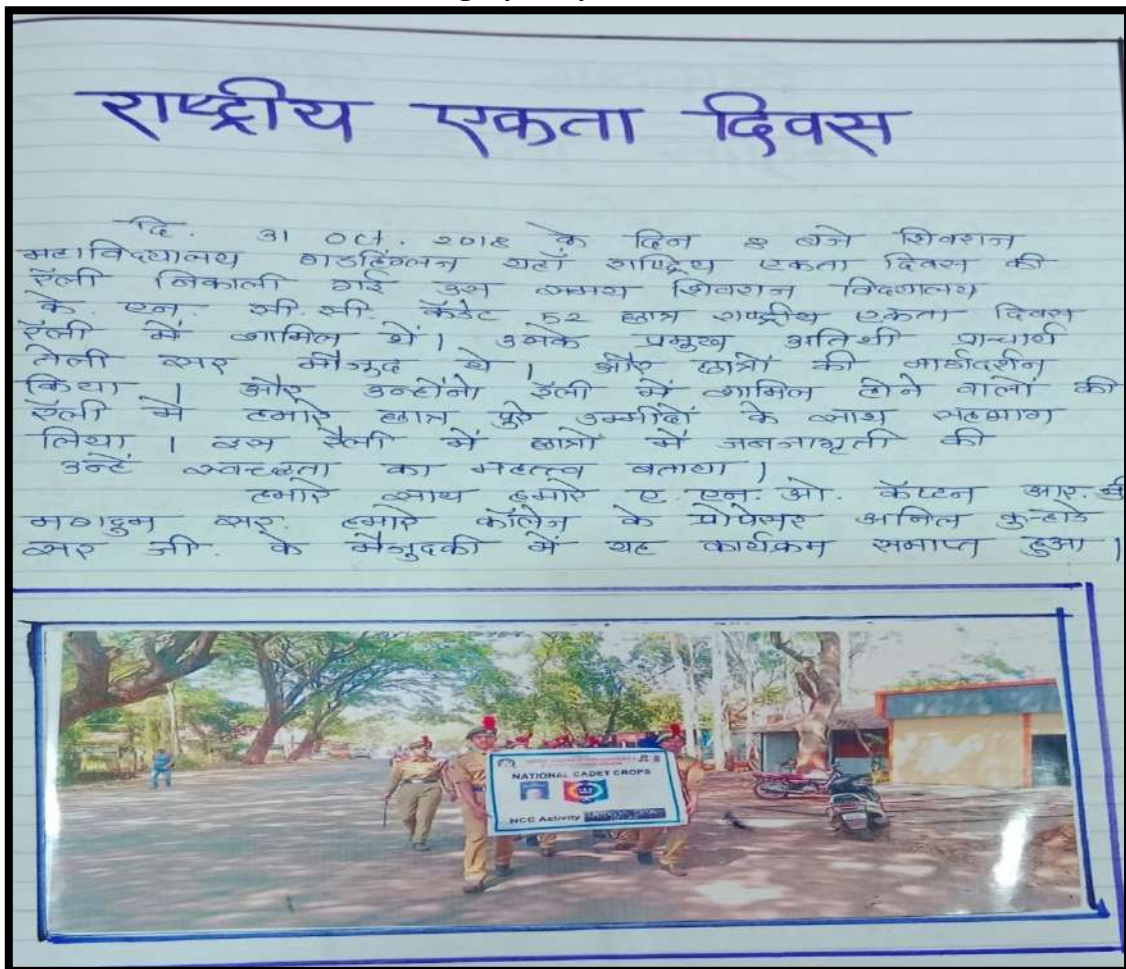 राष्ट्रीय एकता दिवस
दि. 31 oct. 2018 के दिन 8 बजे शिवराज
महाविद्यालय गडहिंग्लज यहाँ राष्ट्रिय एकता दिवस की
रॅली निकाली गई उस समय शिवराज विद्यालय
के. एन. सी. सी. कॅडेट 52 छात्र राष्ट्रीय एकता दिवस
रॅली में शामिल थे। उसके प्रमुख अतिथी प्राचार्य
तेली सर मौजूद थे। और छात्रों की मार्गदर्शन
किया। और उन्होंनो रॅली में शामिल होने वालों की
रॅली मे हमारे छात्र पुरे उम्मीदों के साथ सहभाग
लिया। इस रैली में छात्रों में जनजाग्रृती की
उन्हें स्वच्छता का महत्त्व बताया।
हमारे साथ हमारे ए. एन. ओ. कॅप्टन आर.
मगदुम सर. हमारे कॉलेज के प्रोपेसर अनिल कुऱ्हाडे
सर जी. के मैजुदकी में यह कार्यक्रम समाप्त हुआ।
NATIONAL CADET CROPS
NCC Activity